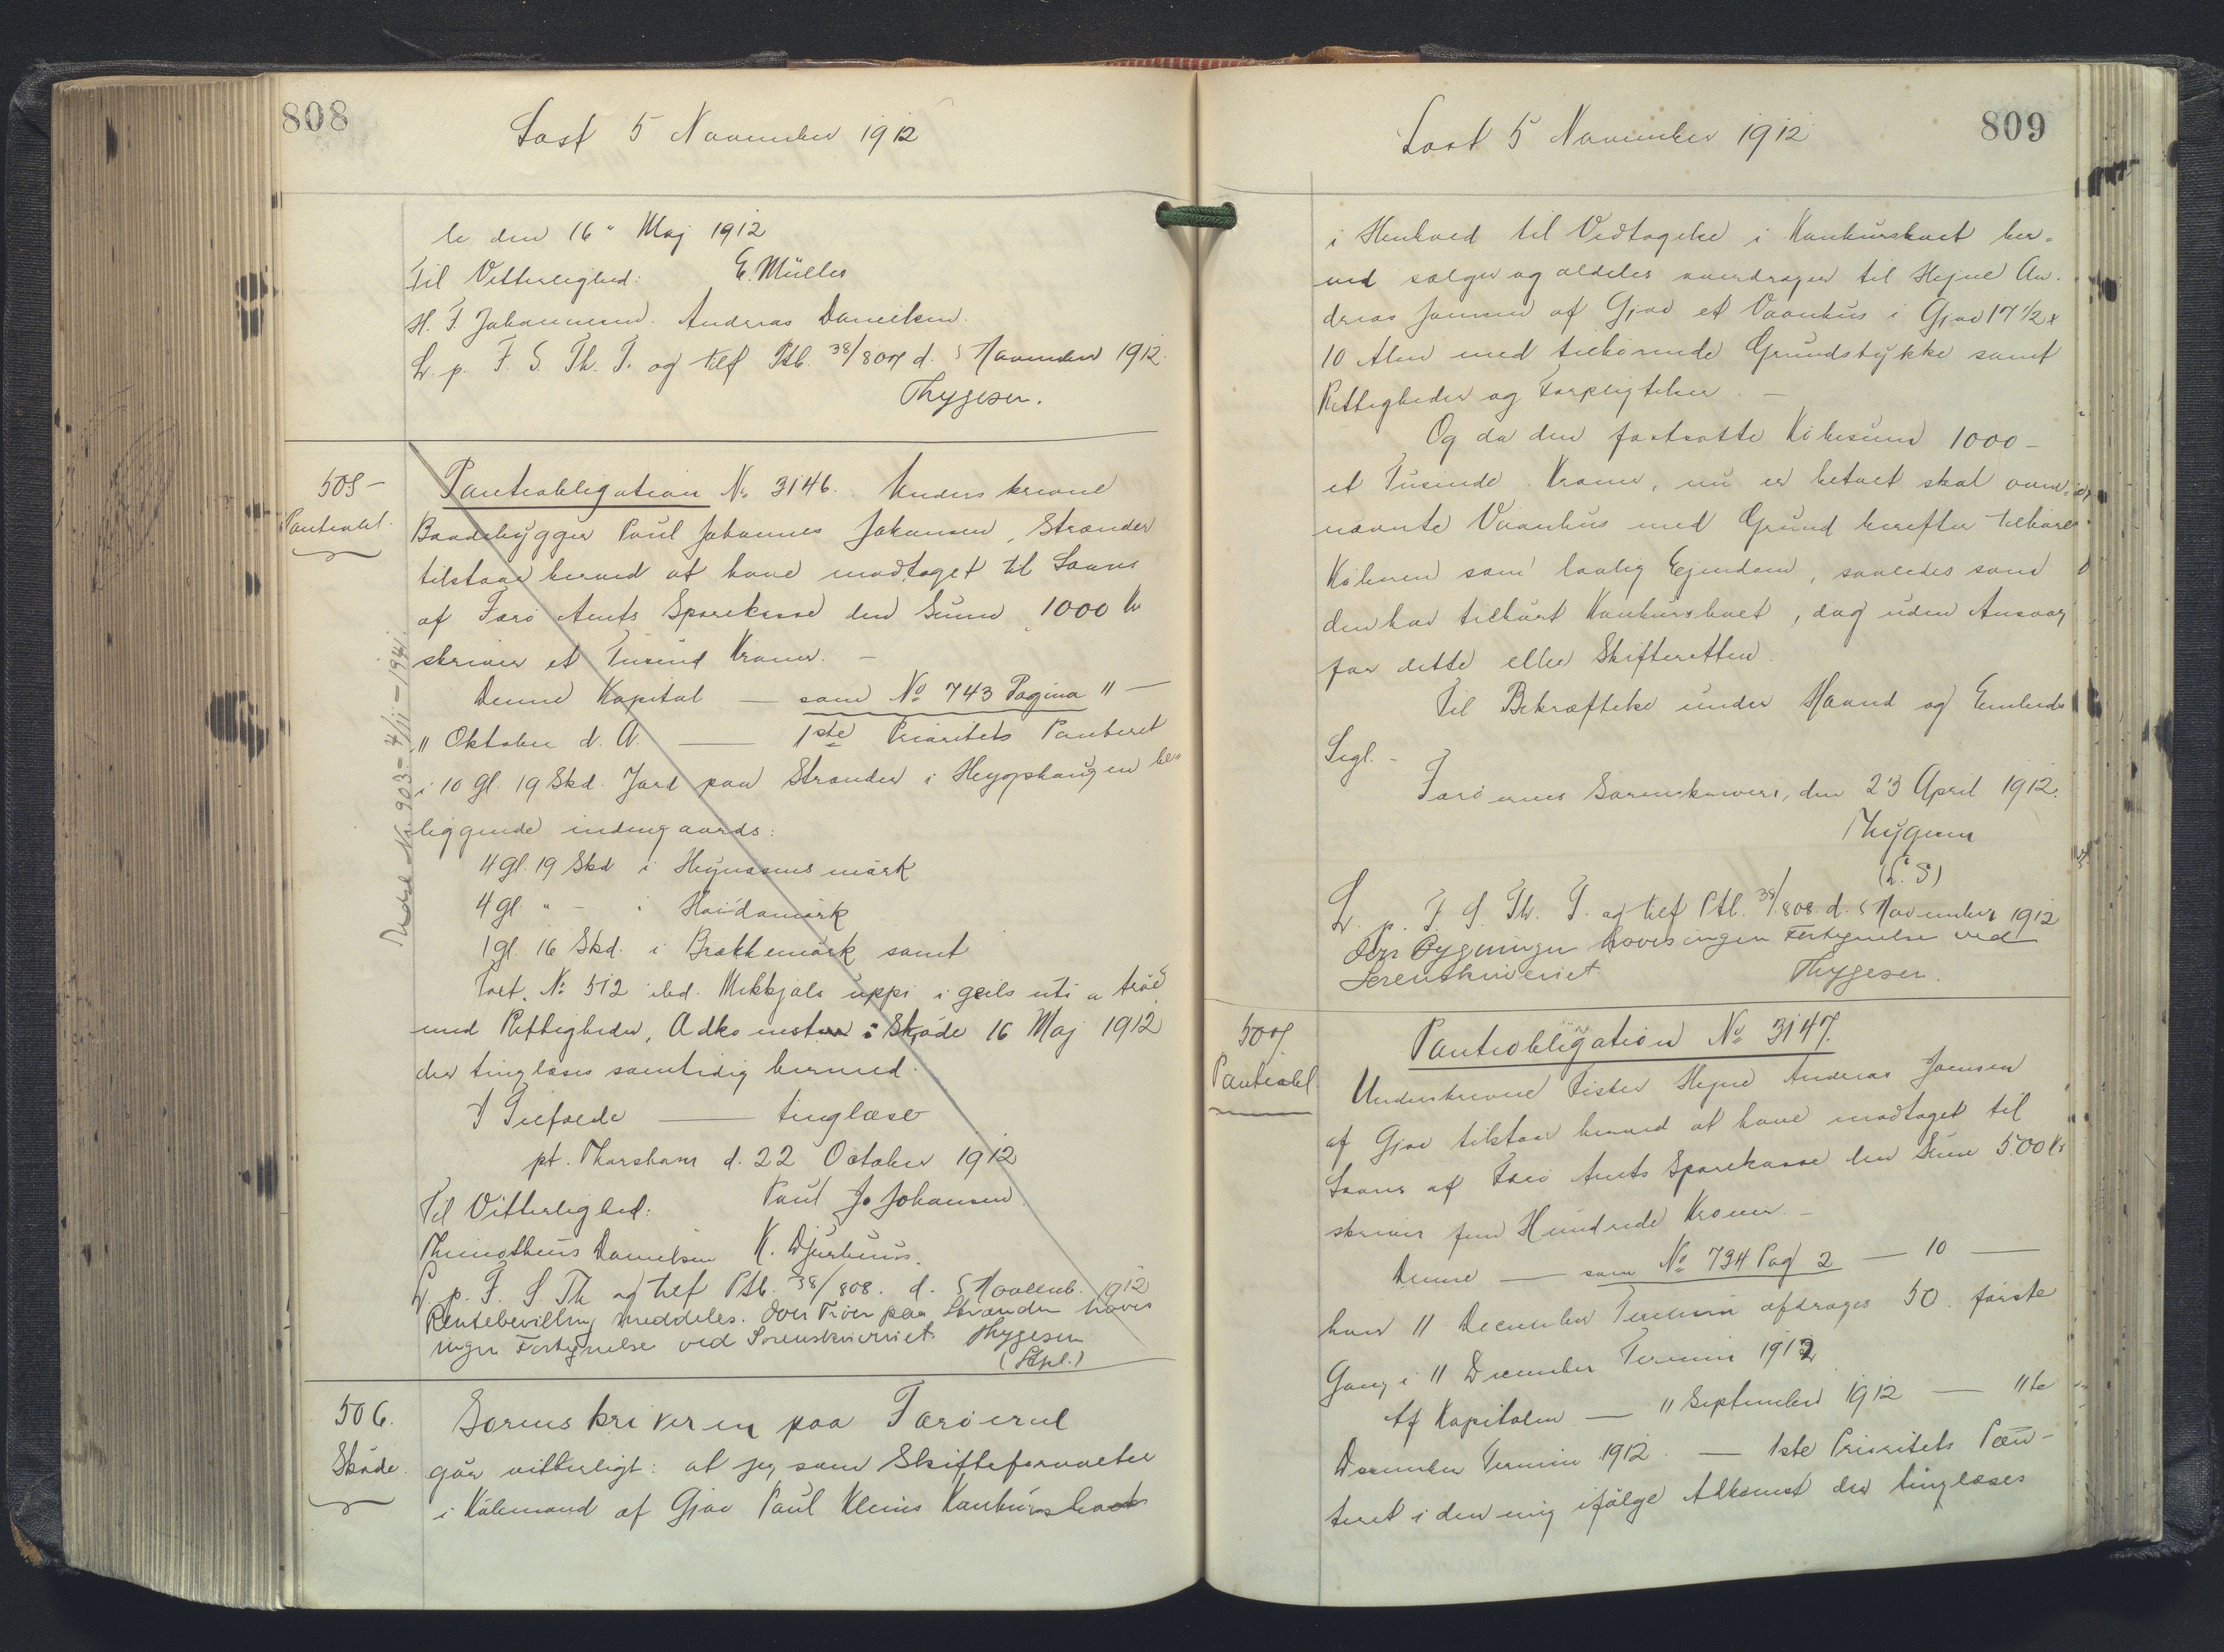 808
Læst 5 November 1912
le den 16" Maj 1912
Til Vitterlighed: E. Müller
H. F Johannesen. Andreas Danielsen.
L. p. F. S. Th. T. og tilf Ptb. 38/807 d. 5 November 1912.
Thygesen.
505-
Panteobl.
Panteobligation No 3146. Underskrevne
Baadebygger Poul Johannes Johansen, Strænder
tilstaar herved at have modtaget til Laans
af Færø Amts Sparekasse den Summa 1000 Kr
skriver et Tusind Kroner. -
Denne Kapital — som No 743 Pagina 11 —
11 Oktober d. A. — 1ste Prioritets Panteret
i 10 Gl. 19 Skd. Jord paa Strænder i Heygshaugen be=
liggende indengaards:
4 gl. 19 Skd i Heynasmsmørk
4 gl. " - i Høidamørk
1 gl. 16 Skd. i Brekkemørk samt
Kort. No 512 ibd. Mikkjals uppi i geils uti a trøð
med Rettigheder, Adkomsten: Skøde 16 Maj 1912
der tinglæses samtidig hermed.
I Tilfælde — tinglæse
pt. Thorshavn d. 22 October 1912
Til Vitterlighed: Paul Jo Johansen.
Thimotheus Danielsen K. Djurhuus.
L. p. F. S. Th og tilf Ptb. 38/808. d. 5 Novemb. 1912
Rentebevilling meddeles. Over Trøer paa Strænder haves
ingen Fortegnelse ved Sorenskriveriet. Thygesen
(Stpl.)
Indst No. 903 - 4/11 - 1941.
506.
Skøde.
Sorenskriveren paa Færøerne
gør vitterligt: at jeg som Skifteforvalter
i Købmand af Gjov Poul Kleins Konkursboet
809
Læst 5 November 1912
i Henhold til Vedtagelse i Konkursboet her=
ved sælger og aldeles overdrager til Hejne An-
dreas Joensen af Gjov et Vaanhus i Gjov 17 1/2 x
10 Alen med tilhørende Grundstykke samt
Rettigheder og Forpligtelser. —
Og da den fastsatte Købesum 1000 -
et Tusinde Kroner, nu er betalt skal oven=
nævnte Vaanhus med Grund herefter tilhøre
Køberen som lovlig Ejendom, saaledes som
den har tilhørt Konkursboet, dog uden Ansvar
for dette eller Skifteretten.
Til Bekræftelse under Haand og Embeds
Segl. -
Færøernes Sorenskriveri, den 23 April 1912.
Thygesen
(L. S)
L. p. F. S. Th. T. og tilf Ptb. 38/808. d. 5 November 1912
Over Bygninger haves ingen Fortegnelse ved
Sorenskriveriet. Thygesen.
507
Panteobl.
Panteobligation No 3147.
Underskrevne Fisker Hejne Andreas Joensen
af Gjov tilstaar herved at have modtaget til
Laans af Færø Amts Sparekasse den Sum 500 Kr
skriver fem Hundrede Kroner. —
Denne — som No 734 Pag 2 — 10 —
hver 11 December Termin afdrages 50. første
Gang i 11 December Termin 1912
Af Kapitalen — 11 September 1912 — 11te
December Termin 1912. — 1ste Prioritets Pan-
teret i den mig ifølge Adkomst der tinglæses